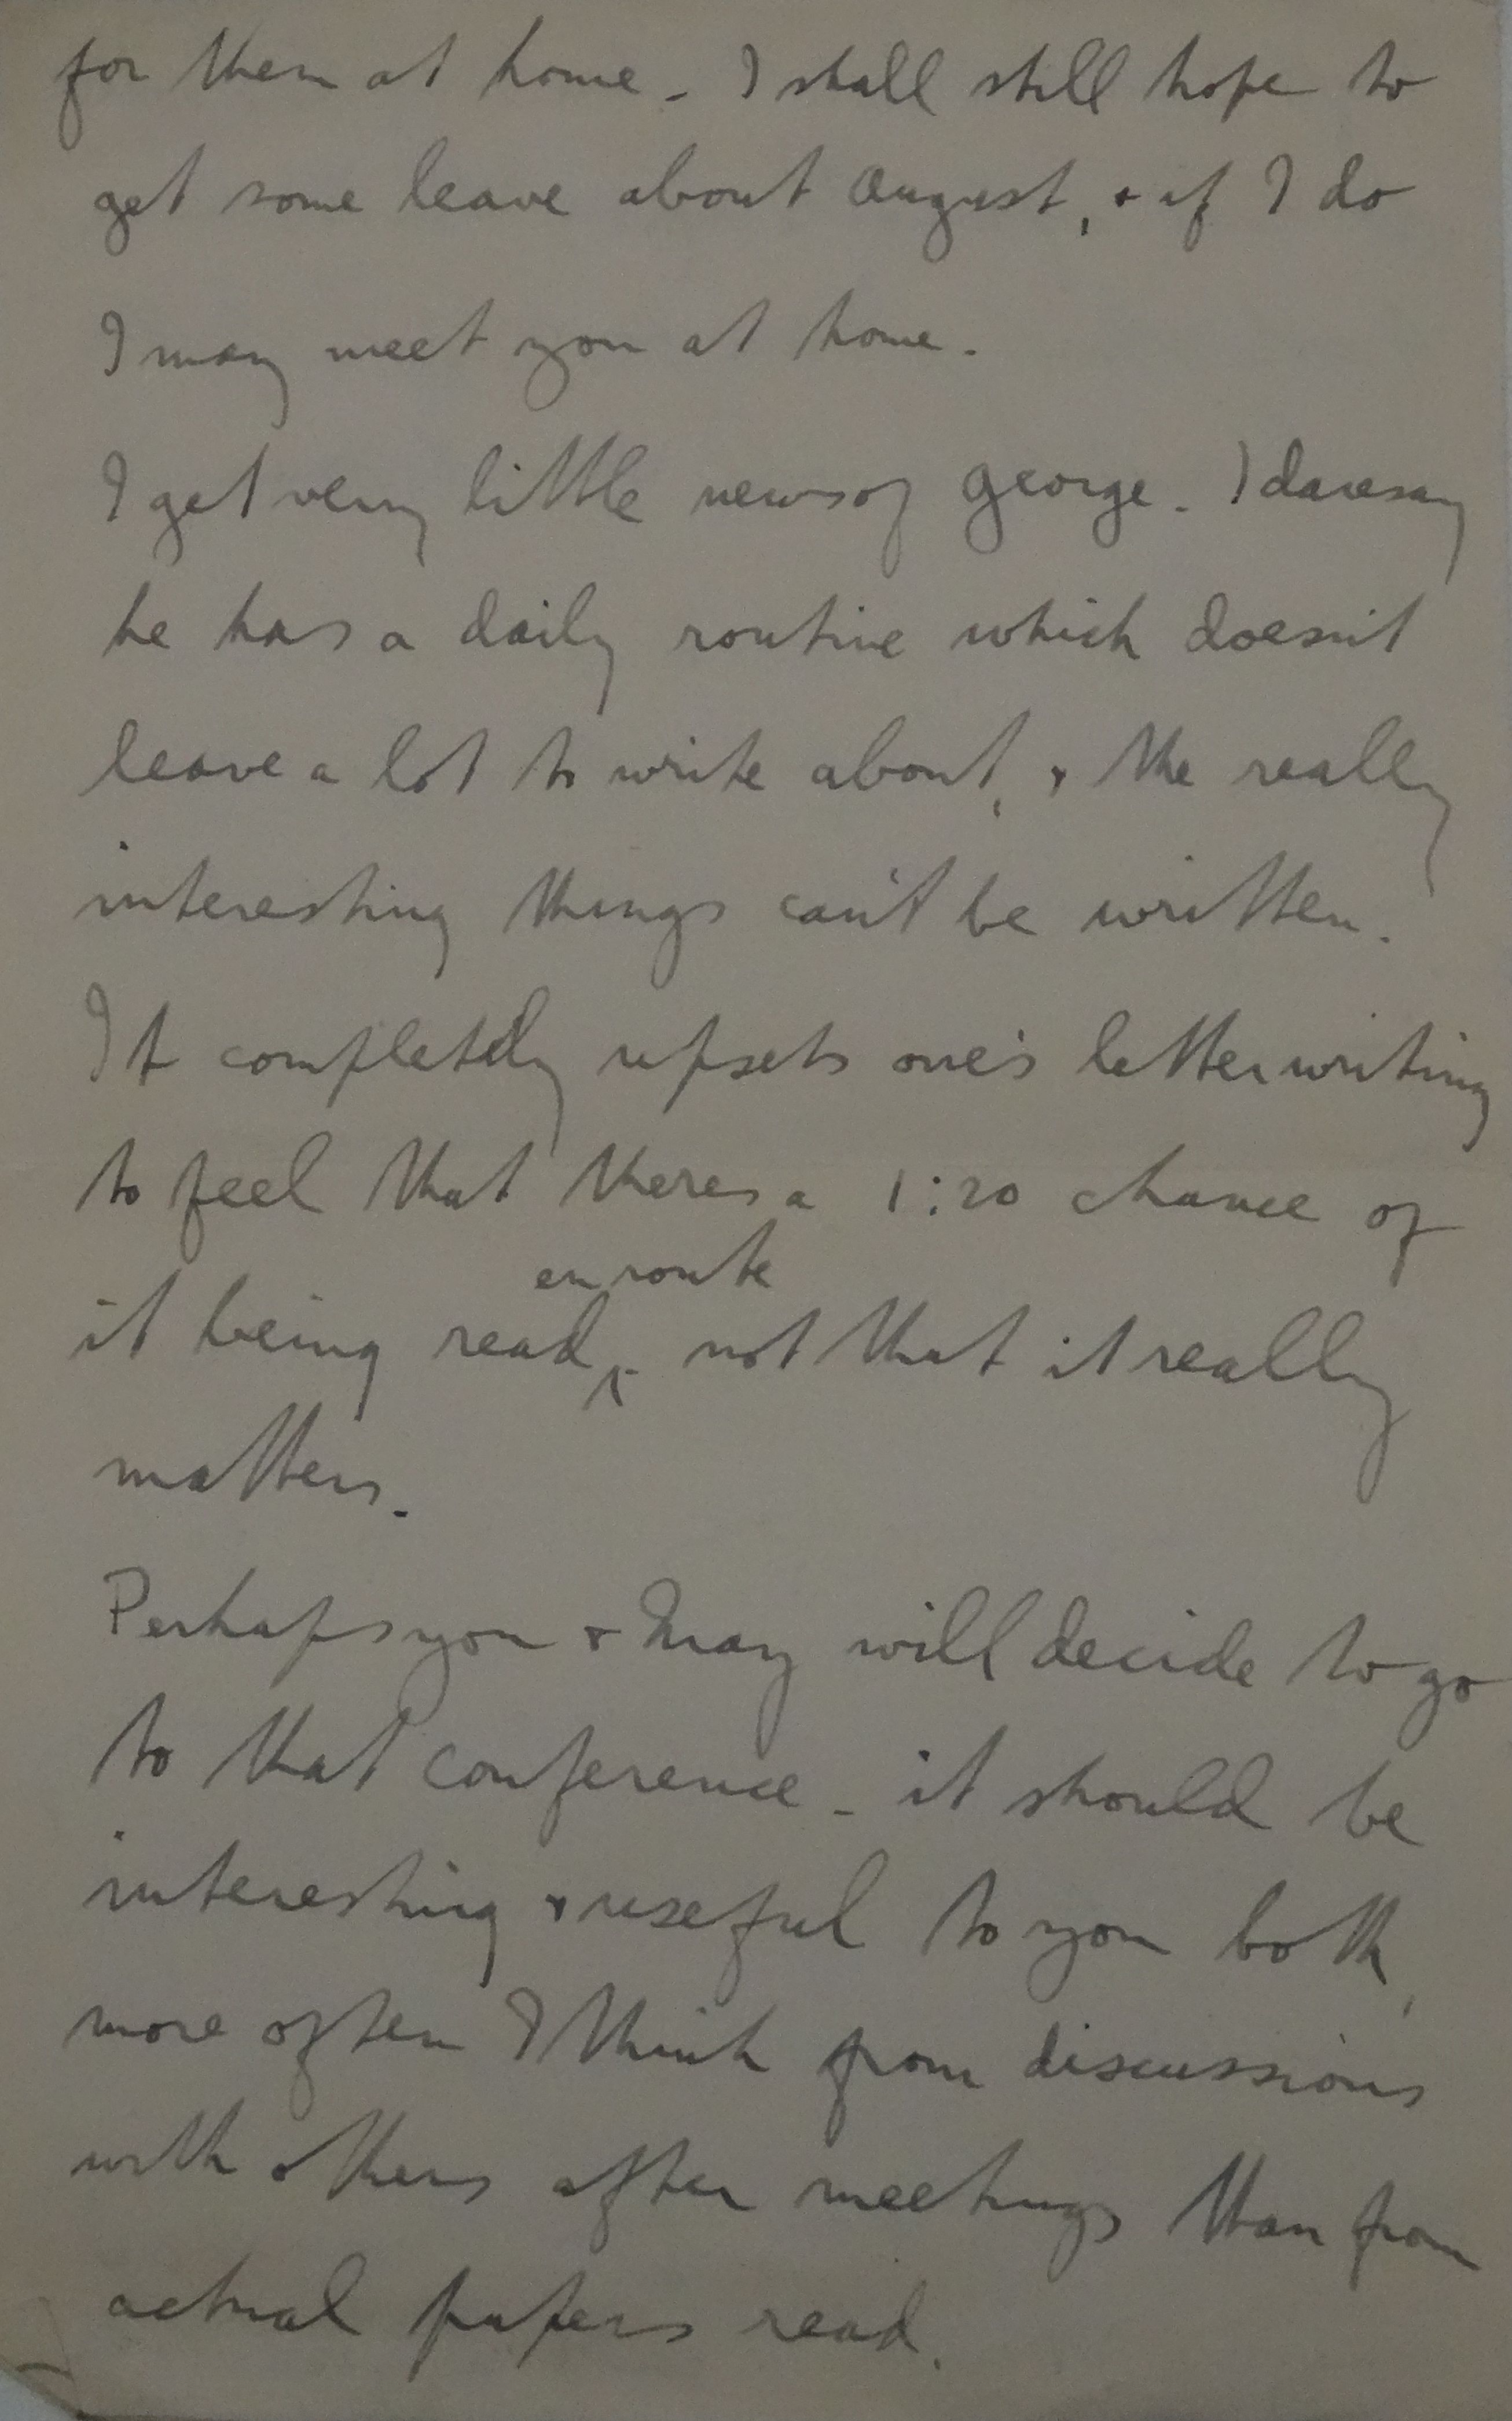 for them at home - I shall still hope to
get some leave about August, & if I do
I may meet you at home.
I get very little news of George. I daresay
he has a daily routine which doesn't
leave a lot to write about, & the really
interesting things can't be written.
It completely upsets one's letter writing
to feel that theres a 1:20 chance of
en route
it being read, - not that it really
matters.
Perhaps you & May will decide to go
to that conference - it should be
interesting & useful to you both,
more often I think from discussions
with others after meetings than from
actual papers read.